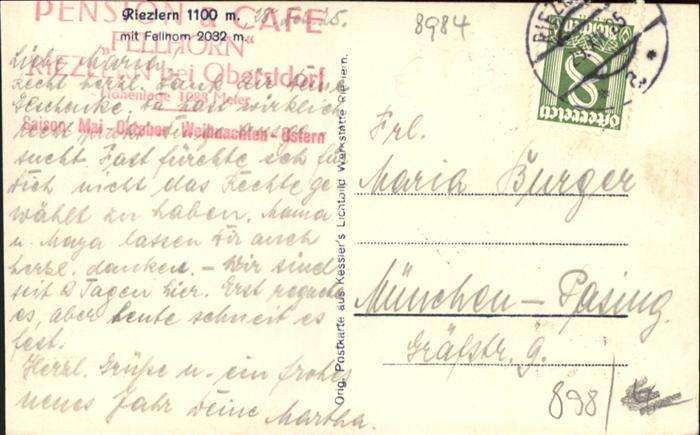 PENSION u. CAFE
„FELLHORN“
RIEZLERN bei Oberstdorf
Höhenlage 1088 Meter
Saison: Mai-Oktober Weihnachten-Ostern
Riezlern 1100 m.
mit Fellhorn 2032 m.
25.
8984
Liebe Maria,
recht herzl. Dank für Deine
Geschenke. Du hast wirklich
sucht. Fast fürchte ich für
Dich nicht das Rechte ge-
wählt zu haben. Mama
u. Maya lassen Dir auch
herzl. danken. – Wir sind
seit 2 Tagen hier. Erst regnete
es, aber heute schneit es
fest.
Herzl. Grüße u. ein frohes
neues Jahr Deine Martha.
Orig. Postkarte aus Kessler's Lichtbild Werkstätte Riezlern.
8
Österreich
Frl.
Maria Burger
München – Pasing.
Gräfstr. 9.
898